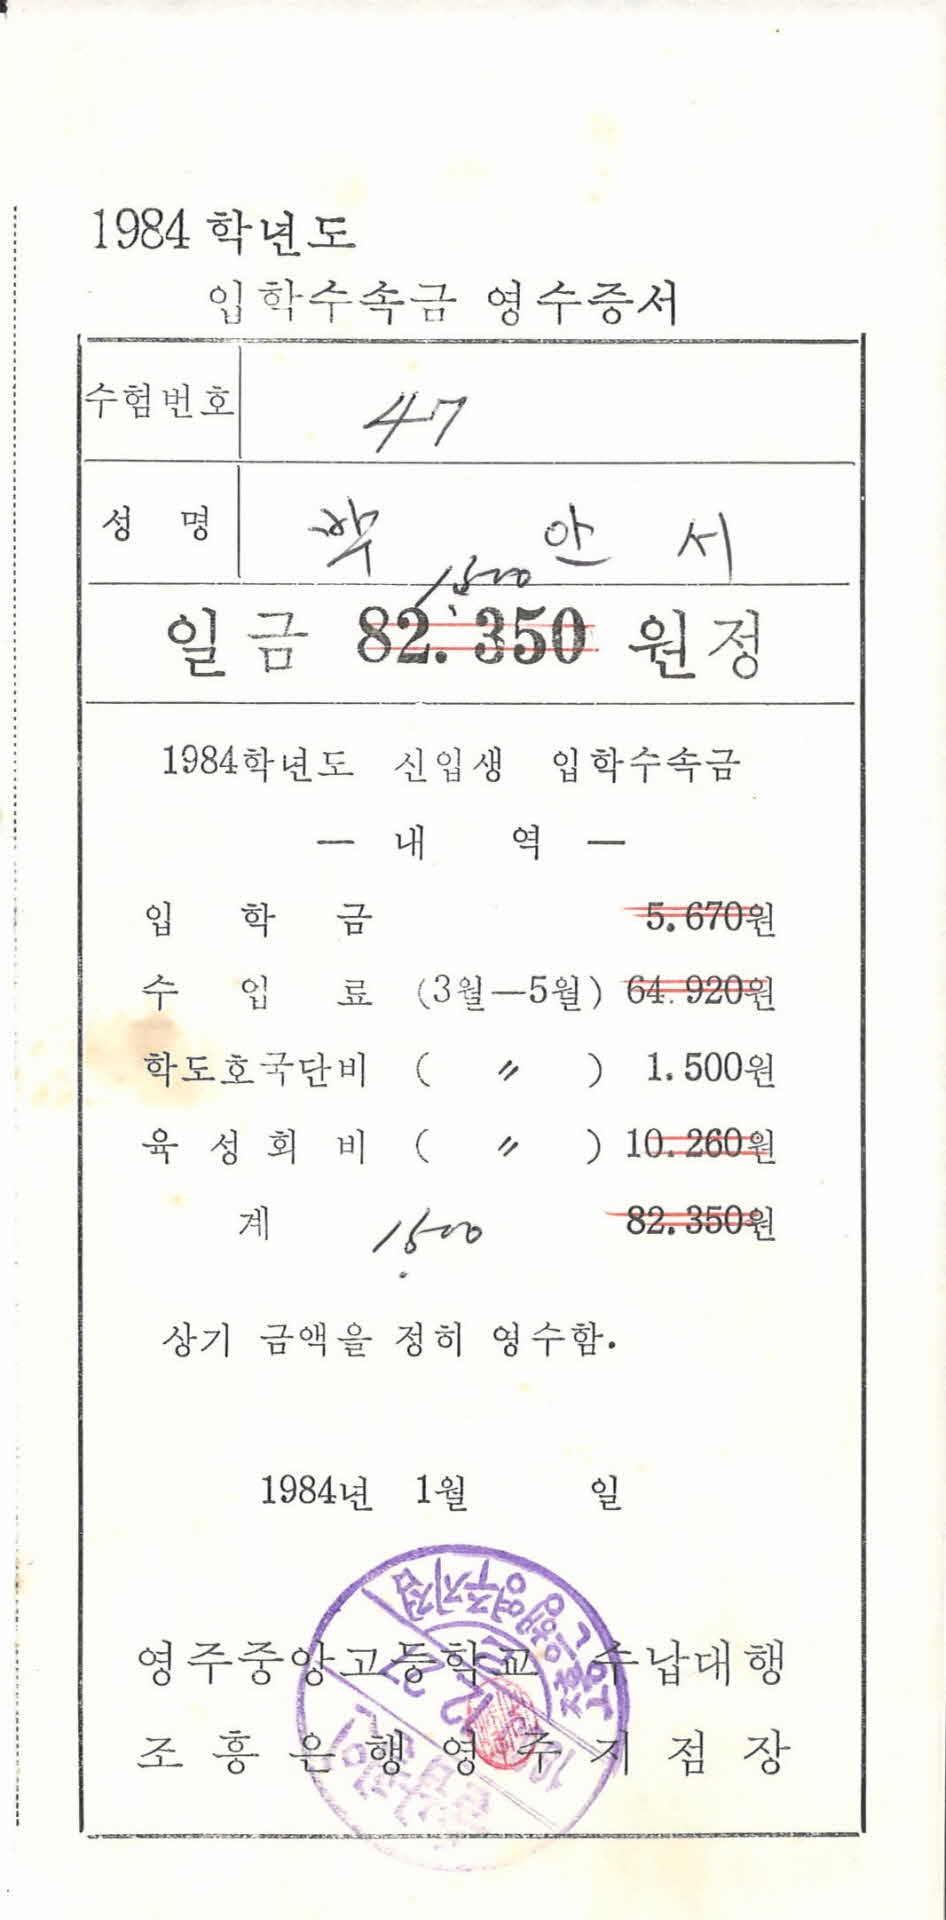 1984 학년도
입학수속금 영수증서
수험번호 47
성 명 박 안 서
1,500
일금 82.350 원정
1984학년도 신입생 입학수속금
— 내 역 —
입 학 금 5.670원
수 업 료 (3월—5월) 64.920원
학도호국단비 ( 〃 ) 1.500원
육성회비 ( 〃 ) 10.260원
계 1,500 82.350원
상기 금액을 정히 영수함.
1984년 1월 일
영주중앙고등학교 수납대행
조흥은행영주지점장
조흥은행영주지점
12 27